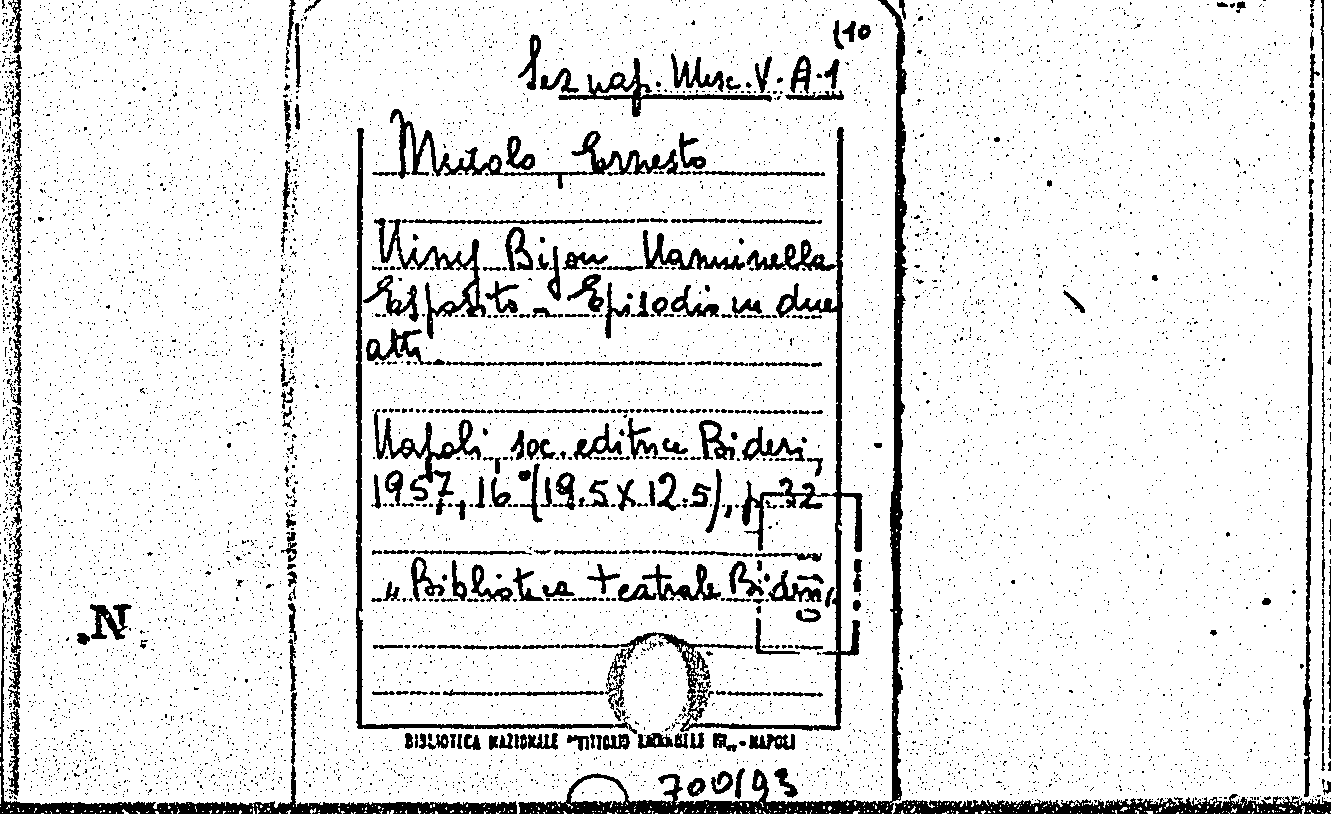 (10
Sez nap. Misc. V. A. 1
Murolo, Ernesto
Ninì Bijou Nanninella
Esposito - Episodio in due
atti.
Napoli, soc. editrice Bideri,
1957, 16° (19.5 x 12.5), p. 32
"Biblioteca teatrale Bideri"
N.
BIBLIOTECA NAZIONALE "VITTORIO EMANUELE III" - NAPOLI
700193